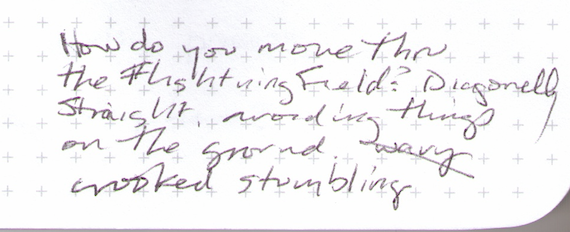 How do you move thru
the Lightning Field? Diagonelly
straight, avoiding things
on the ground. wavy
crooked stumbling